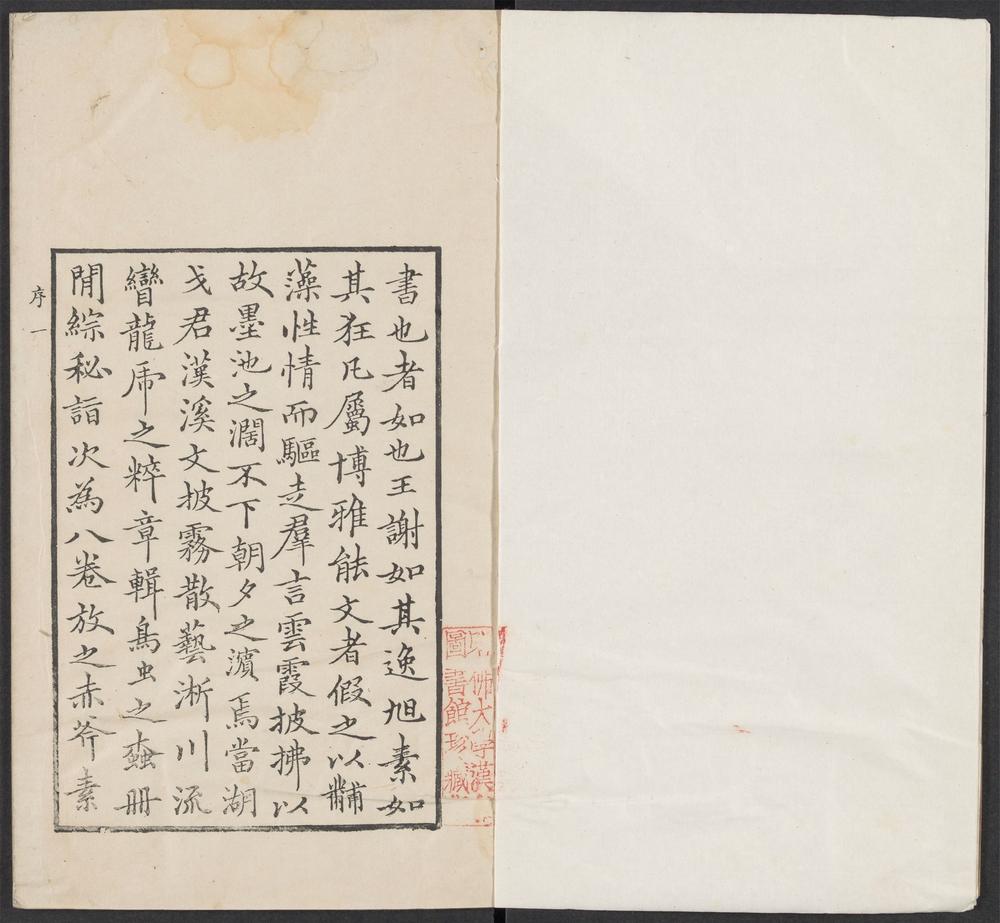 書也者如也王謝如其逸旭素如
其狂凡屬博雅能文者假之以黼
藻性情而驅走羣言雲霞披拂以
故墨池之濶不下朝夕之濵焉當湖
戈君漢溪文披霧散藝淅川流
龍虎之粹章輯鳥虫之蠧冊
閒綜秘詣次為八卷放之赤斧素
序一
佛大學漢
圖書館珍藏